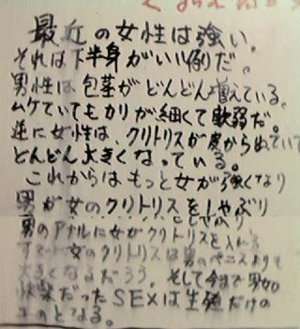 最近の女性は強い。
それは下半身がいい例だ。
男性は包茎がどんどん増えている。
ムケていてもカリが細くて軟弱だ。
逆に女性は、クリトリスが皮からぬいでいて
どんどん大きくなっている。
これからはもっと女が強くなり
男が女のクリトリスをしゃぶり
男のアナルに女がクリトリスを入れる
女のクリトリスは男のペニスよりも
大きくなるだろう。そして今まで男女
快楽だったSEXは生殖だけの
ものとなる。